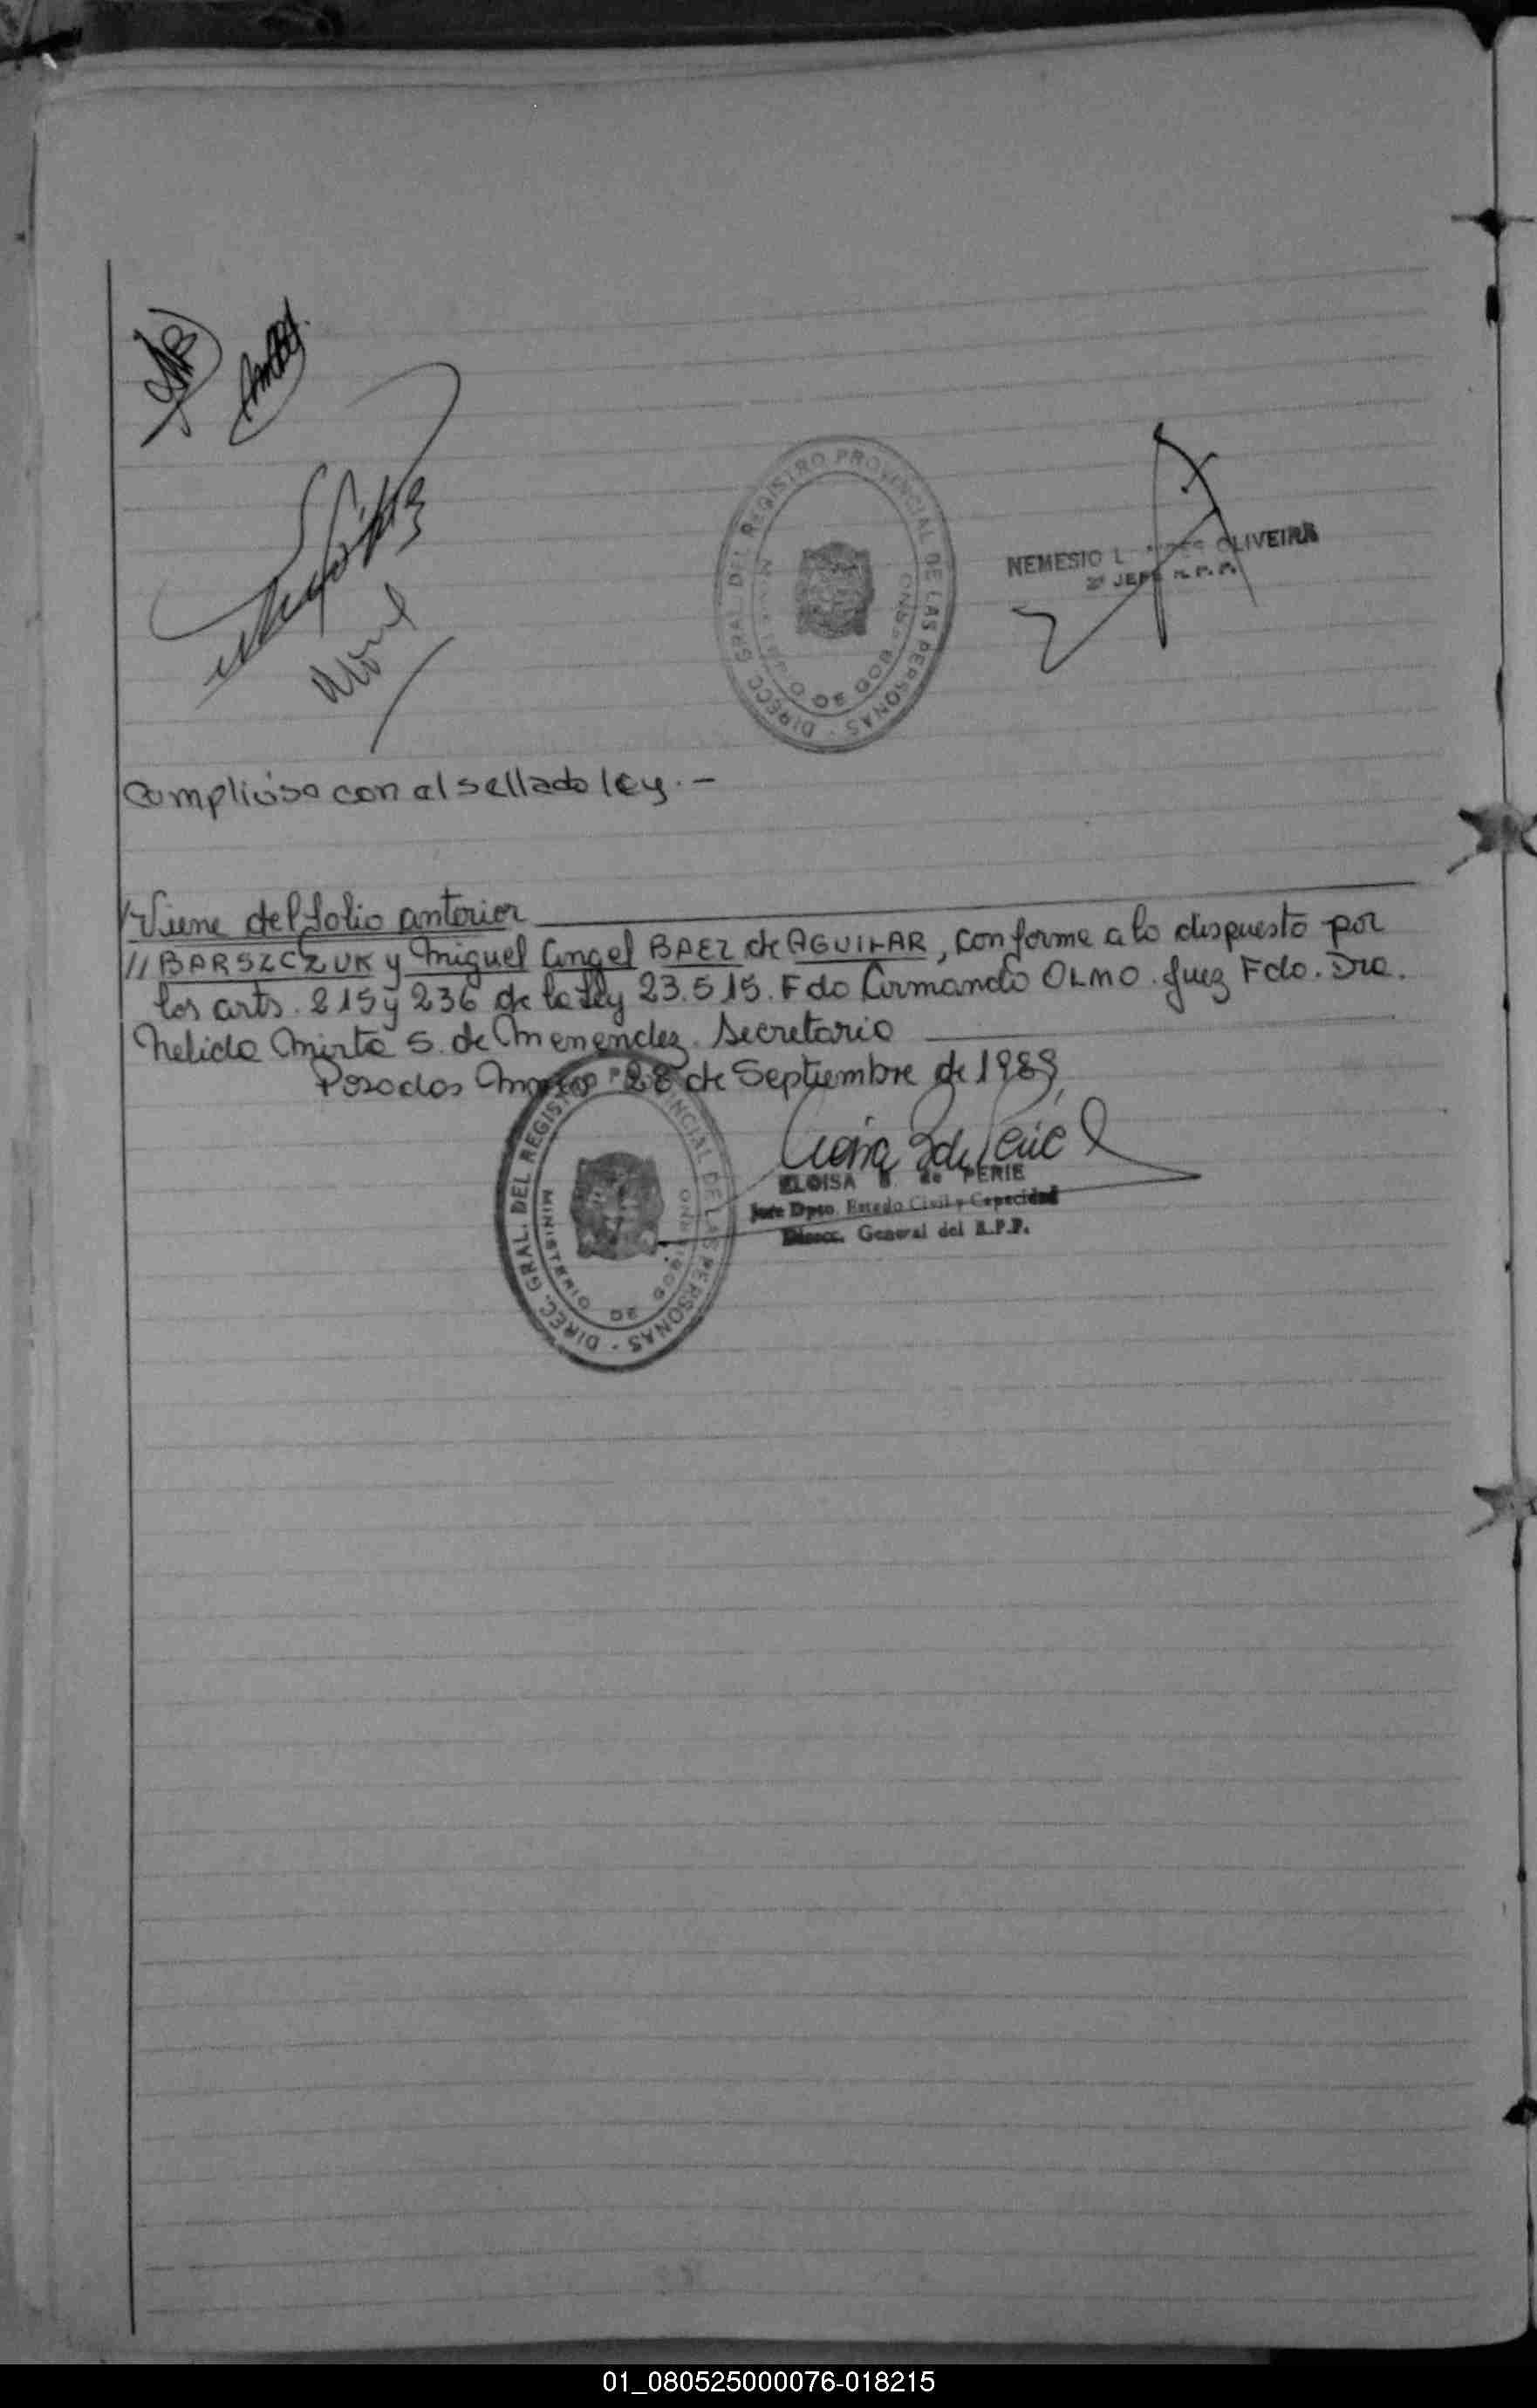 DIRECC. GRAL. DEL REGISTRO PROVINCIAL DE LAS PERSONAS
NEMESIO L OLIVEIRA
2º JEFE R.P.P.
Cumplióse con al sellado ley.-
Viene del folio anterior
// BARSZCZUK y Miguel Angel BAEZ de AGUILAR, conforme a lo dispuesto por
los arts. 215 y 236 de la Ley 23.515. Fdo Armando OLMO. Juez Fdo. Dra.
Nelida Mirta S. de Menendez. Secretaria
Posadas 28 de Septiembre de 1989
DIREC. GRAL. DEL REGISTRO PROVINCIAL DE LAS PERSONAS
MINISTERIO DE GOBIERNO
ELOISA B. de PERIE
Jefe Dpto. Estado Civil y Capacidad
Direcc. General del R.P.P.
01_080525000076-018215